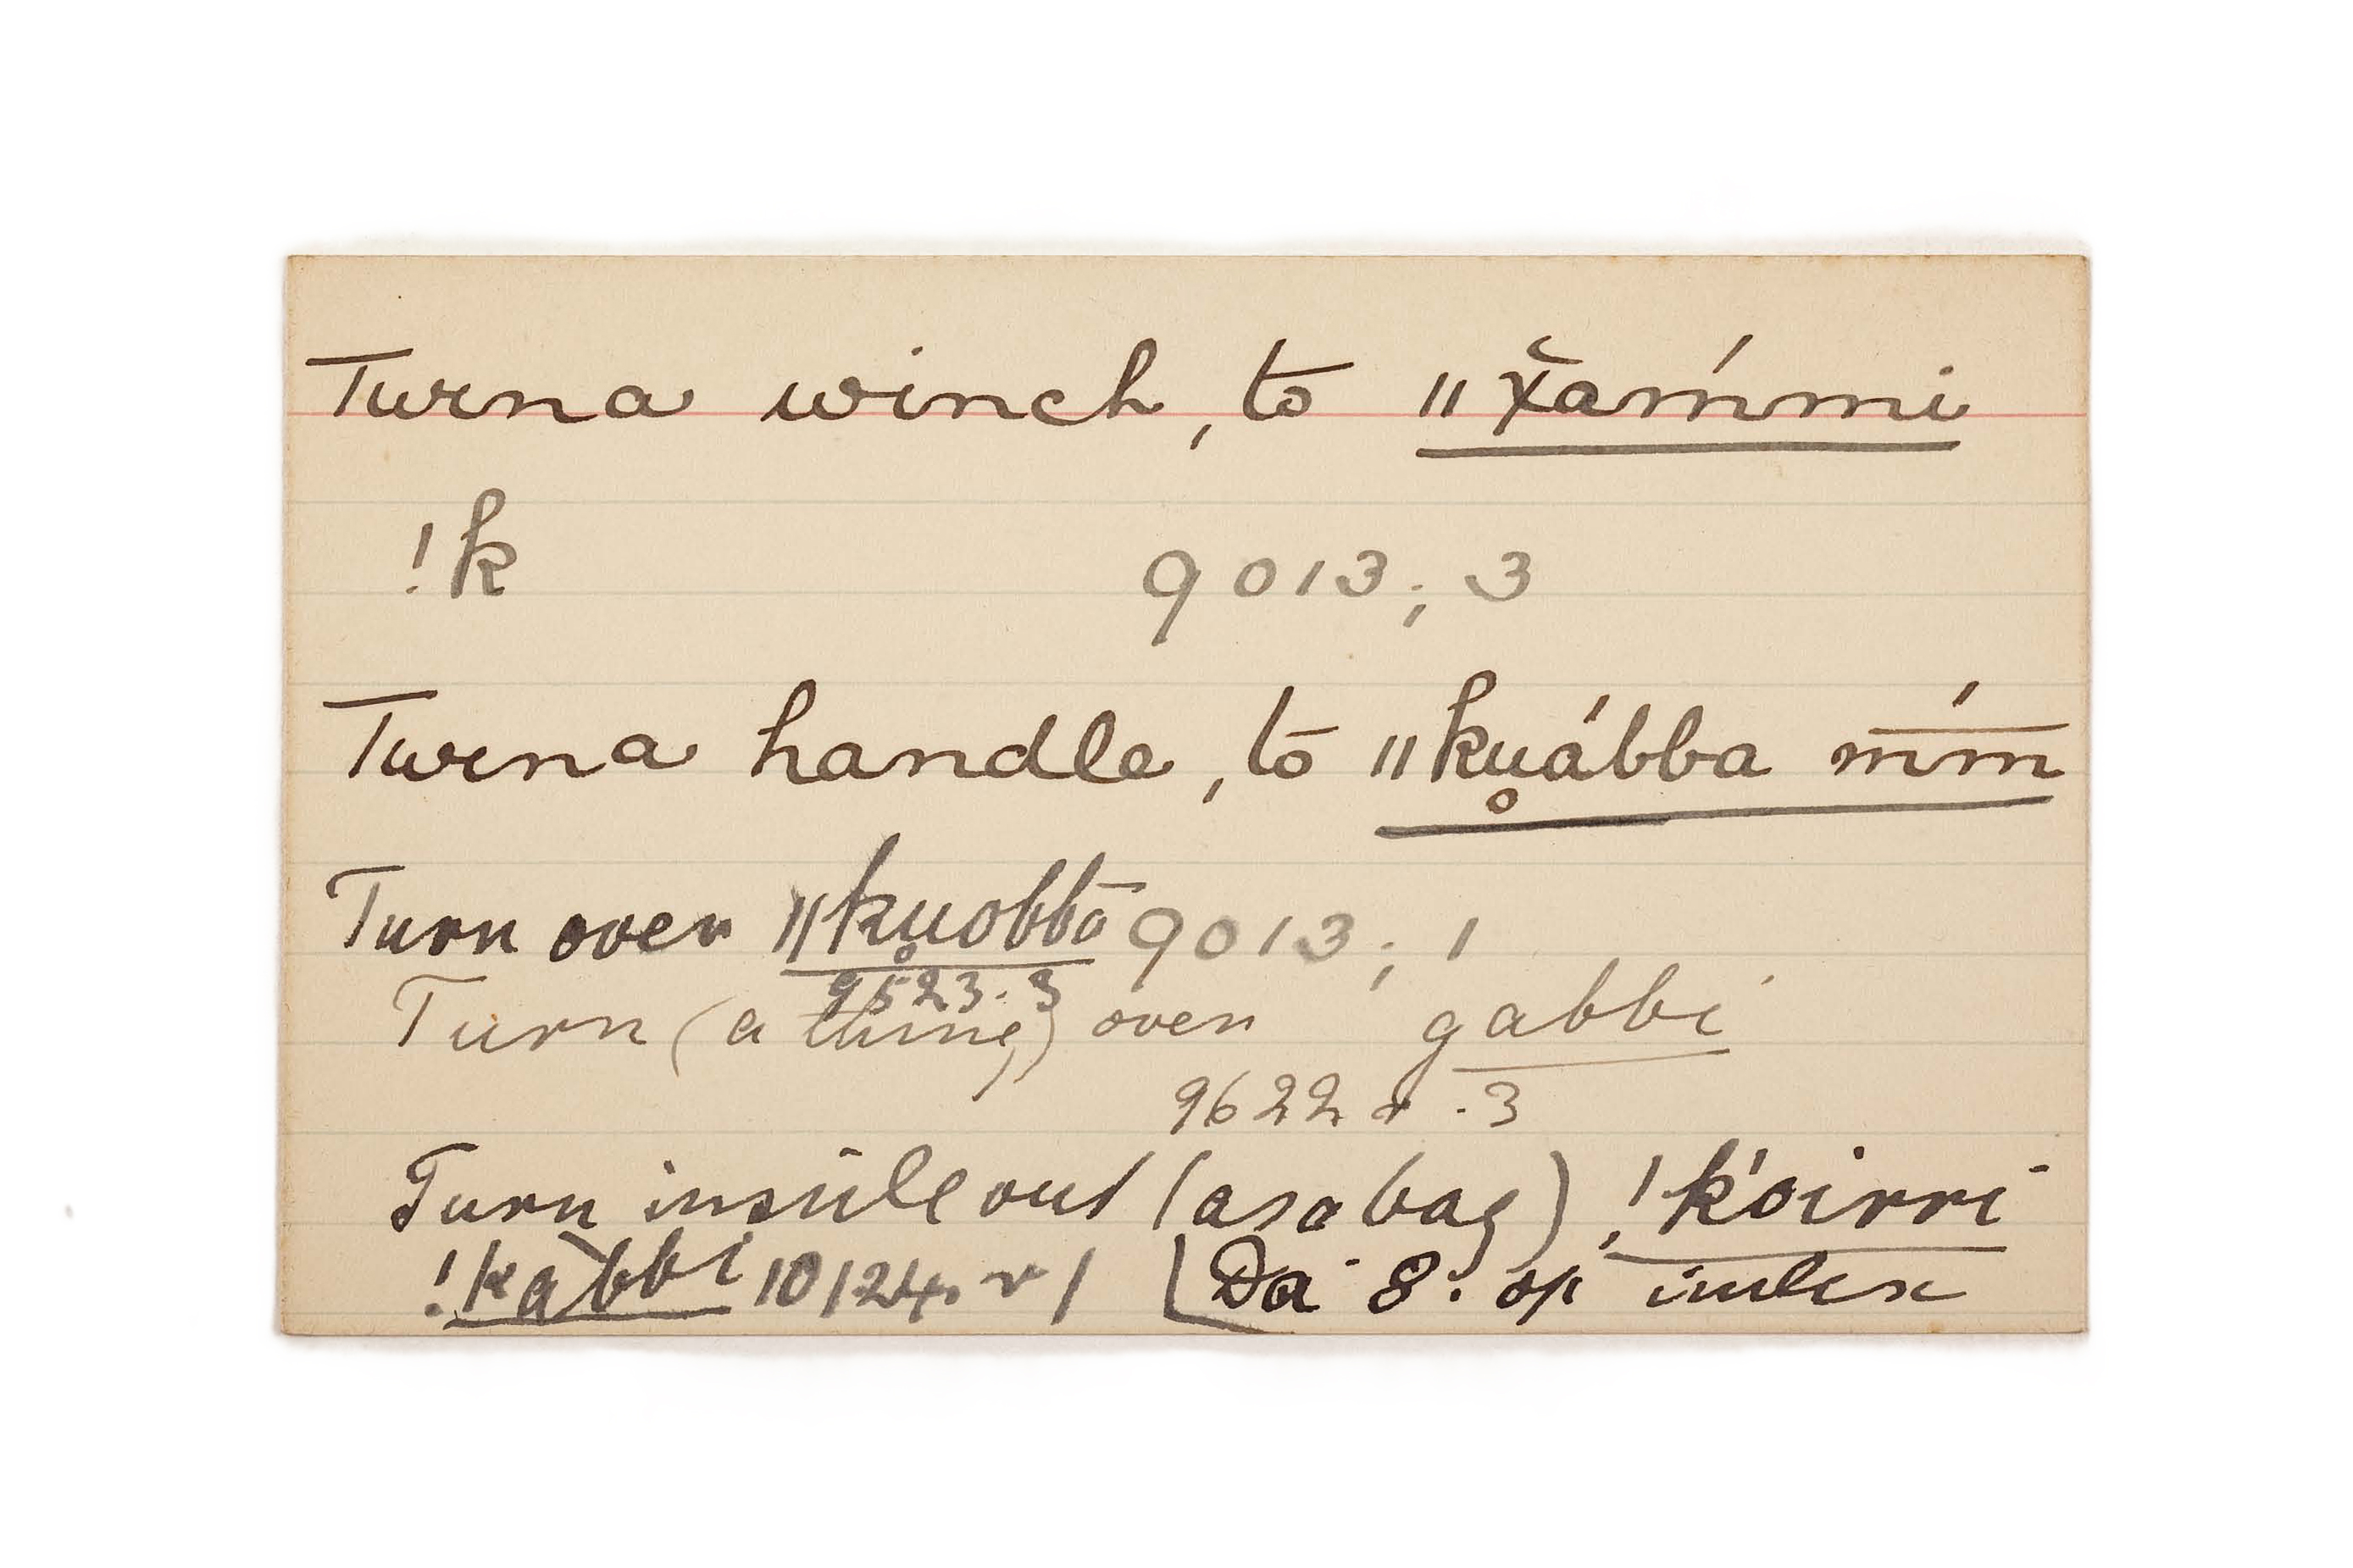 Turn a winch, to ǁx̆am̄́mi
!k 9013; 3
Turn a handle, to ǁku̥ábba m̄́m̄
Turn over ǁku̥obbō 9013; 1
9523. 3
Turn (a thing) over gabbi
9622 r .3
Turn inside out (as a bag), !k'oirri
!kàbbi 10124. r / [Da 8. op index